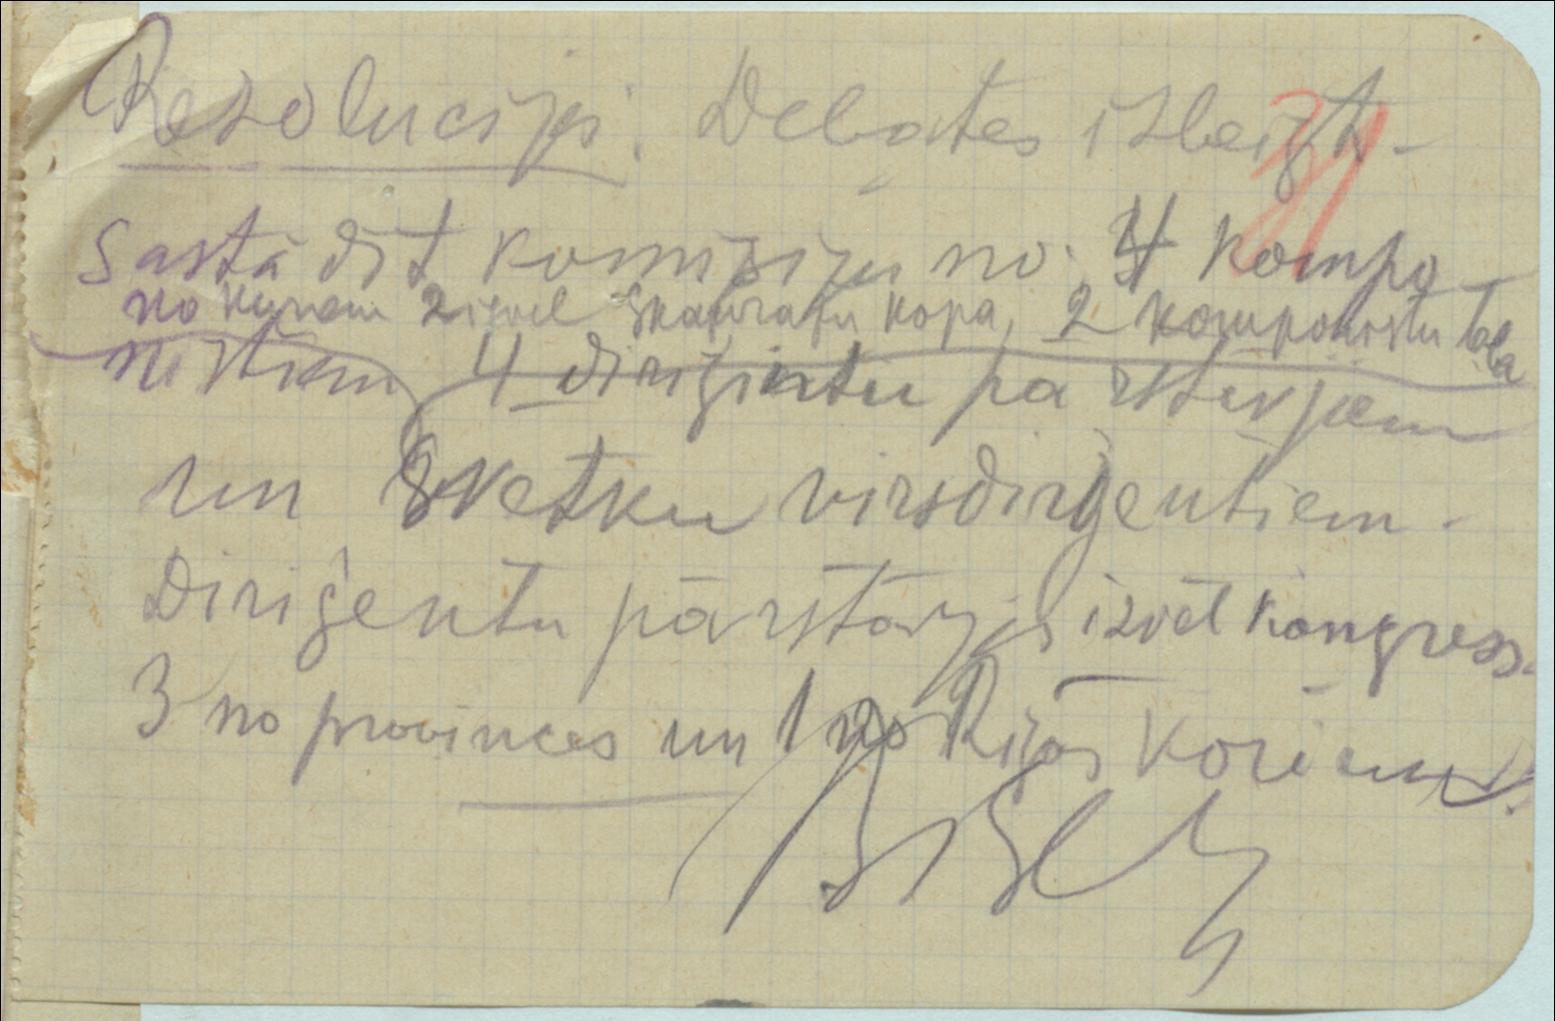 Rezolucija: Debates izbeigt.
31
Sastādīt komisiju no 4 kompo
no kuŗiem 2 izvēl Skaņražu kopa, 2 komponistu
nistiem, 4 diriģentu pārstavjiem
un Svētku virsdirigentiem.
Diriģentu pārstāvjus izvēl kongress.
3 no provinces un 1 no Rīgas koriem